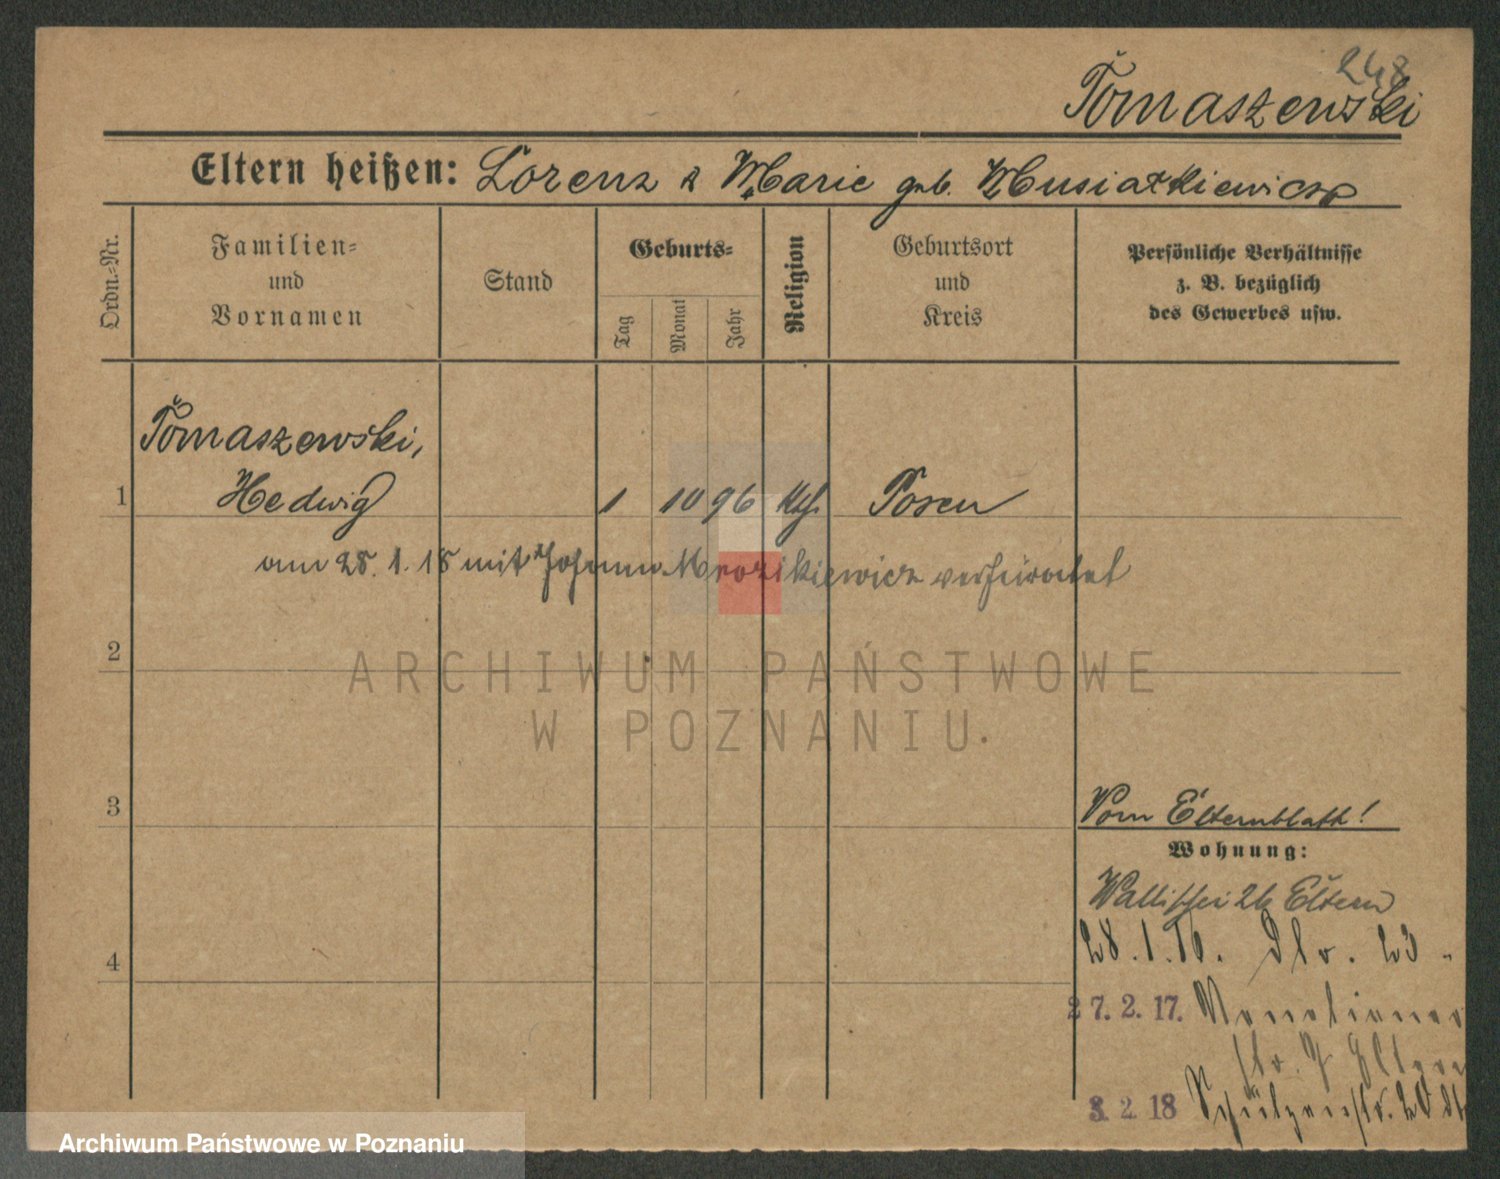 248
Tomaszewski
Eltern heißen: Lorenz & Marie geb. Musiatkiewicz
Ordn.=Nr.
Familien=
und
Vornamen
Stand
Geburts=
Tag
Monat
Jahr
Religion
Geburtsort
und
Kreis
Persönliche Verhältnisse
z. B. bezüglich
des Gewerbes usw.
Tomaszewski,
1 Hedwig 1 10 96 Kth. Posen
am 28. 1. 18 mit Johann Mrozikiewicz verheiratet
2
3
4
Vom Elternblatt!
Wohnung:
Wallischei 26 Eltern
28. 1. 16. 23
27. 2. 17. Venetianer
str. 7 Eltern
8. 2 18 Schützenstr. 20
ARCHIWUM PAŃSTWOWE
W POZNANIU
Archiwum Państwowe w Poznaniu